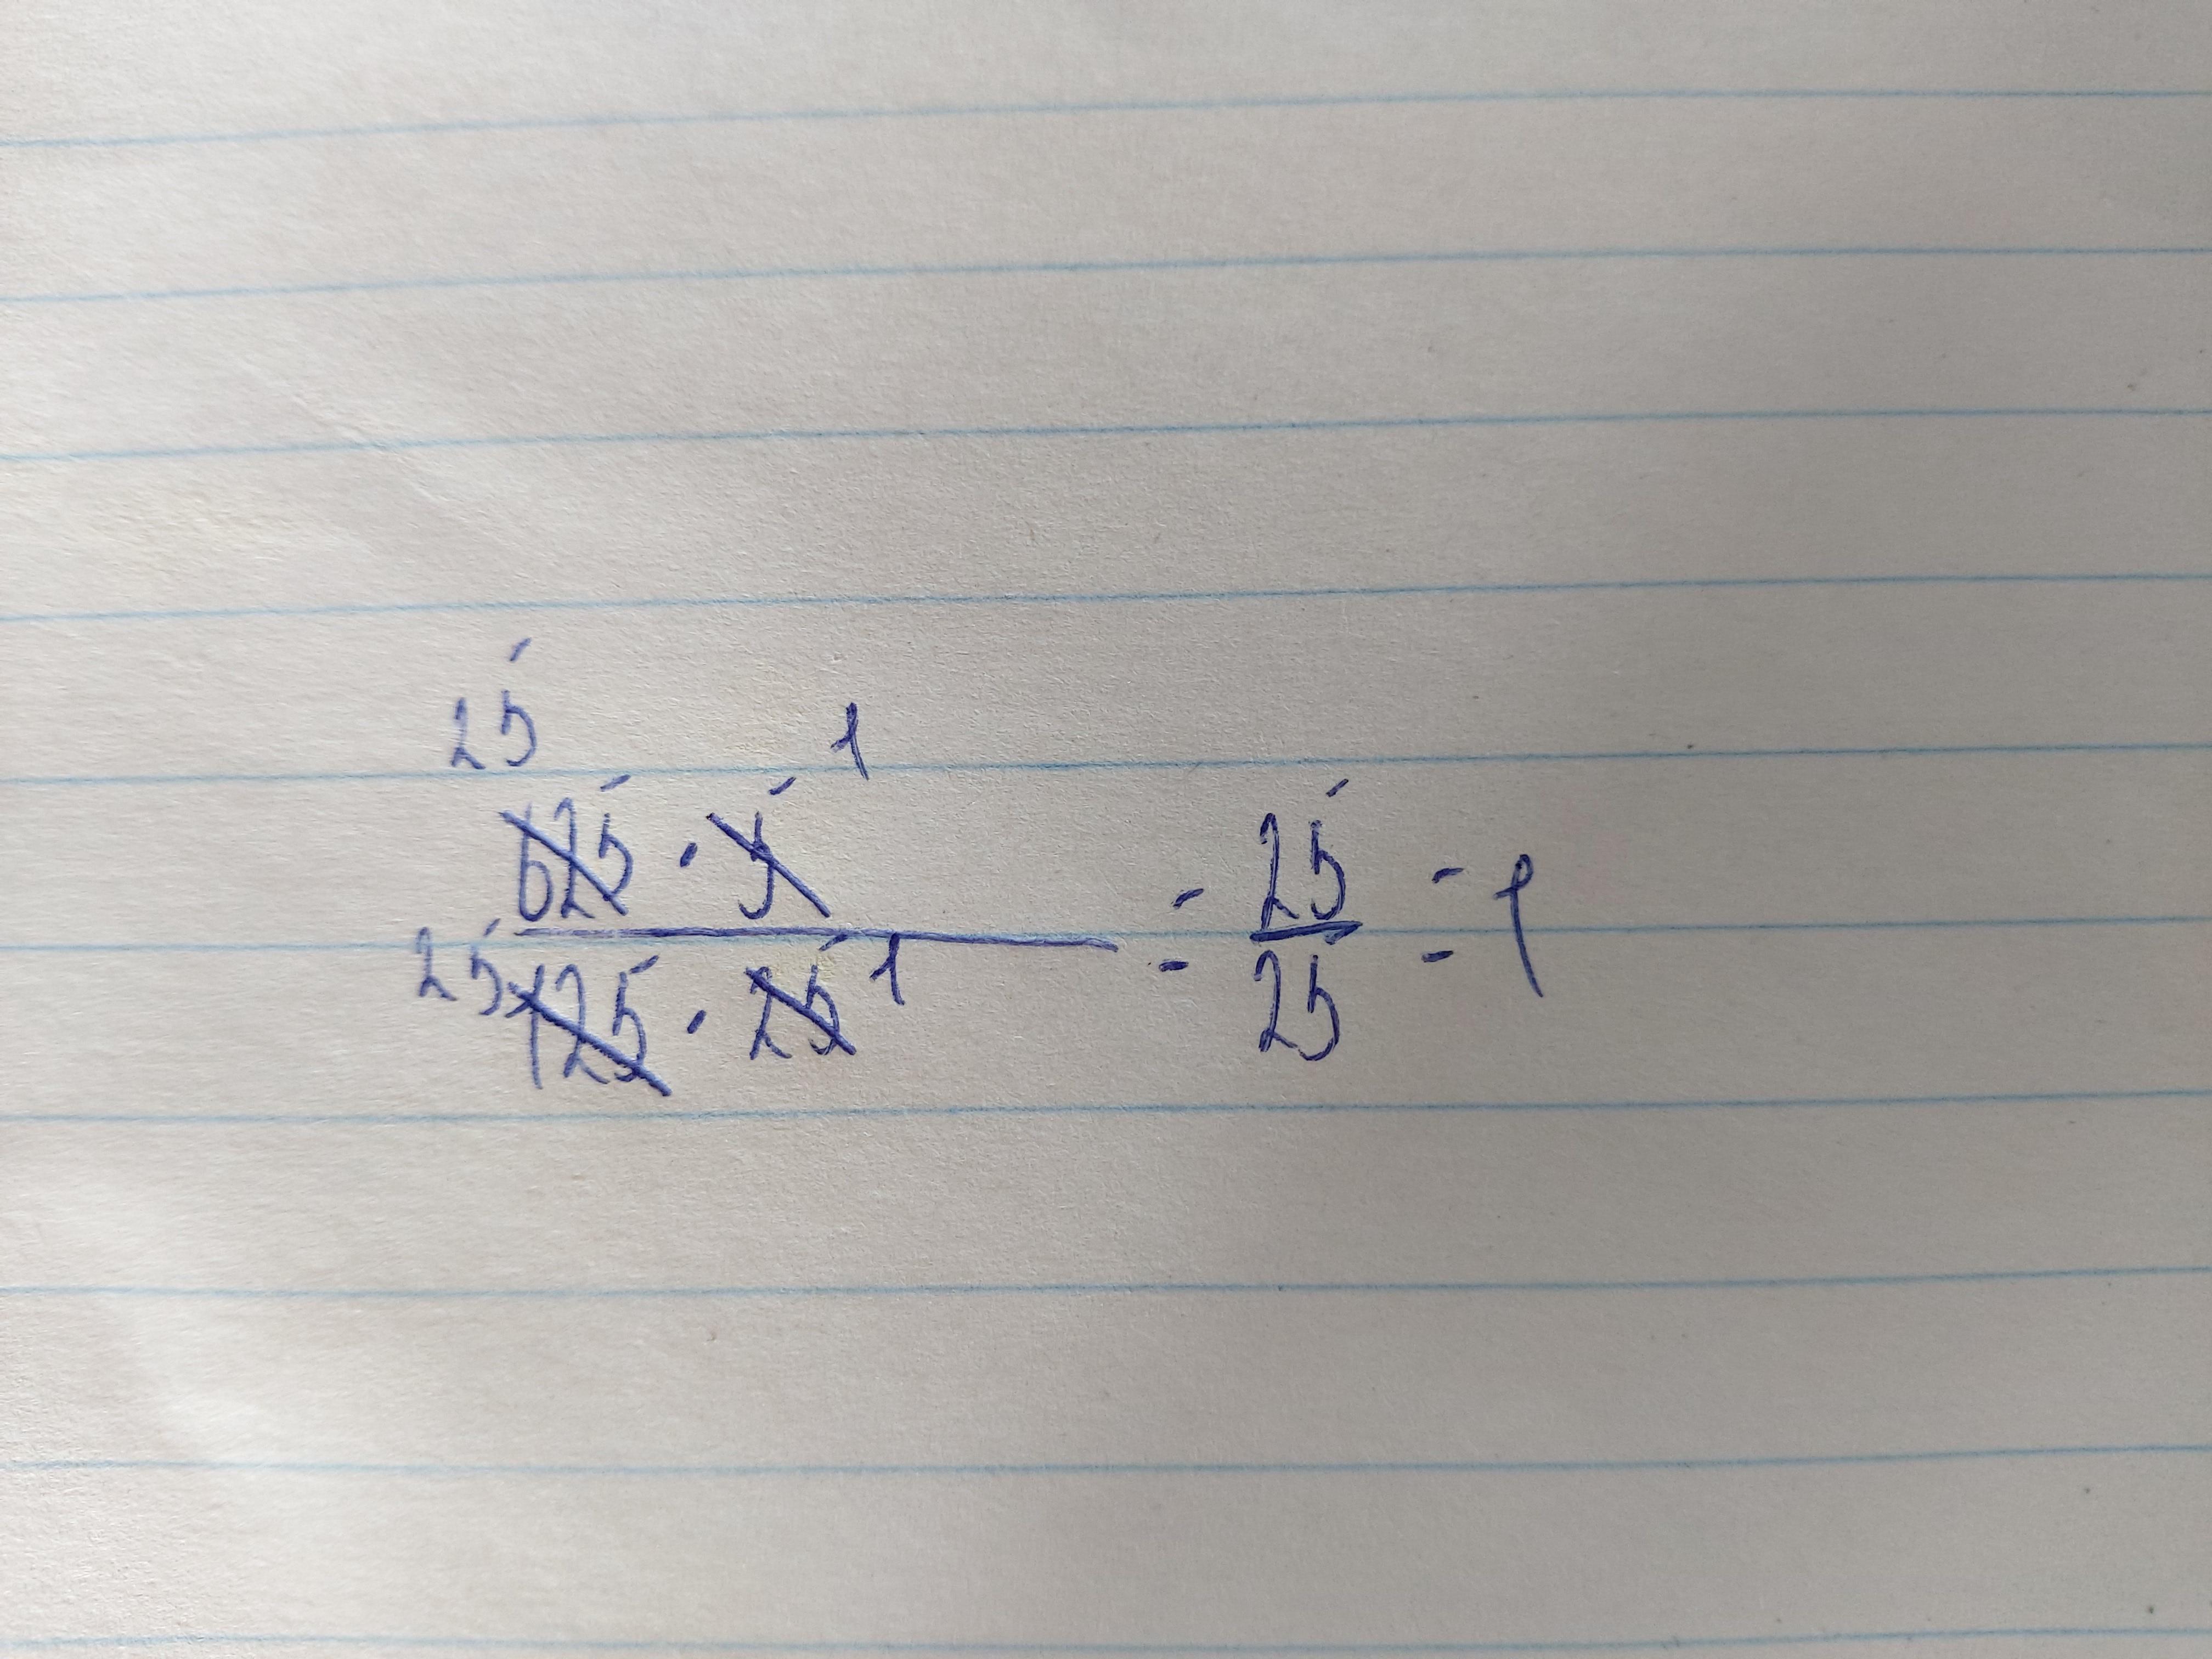 25 1
625 · 5
25 125 · 25 1 = 25/25 = 1